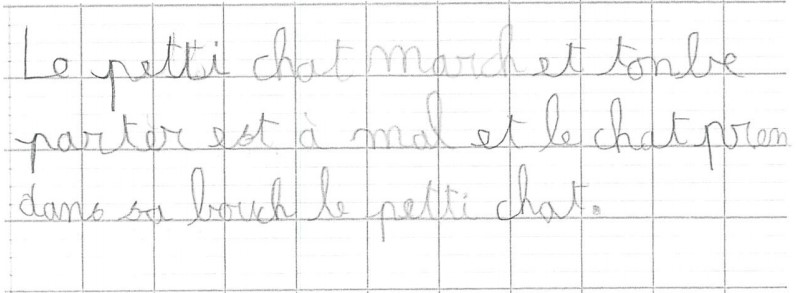 Le petti chat march et tonbe
parter est à mal et le chat pren
dans sa bouch le petti chat.